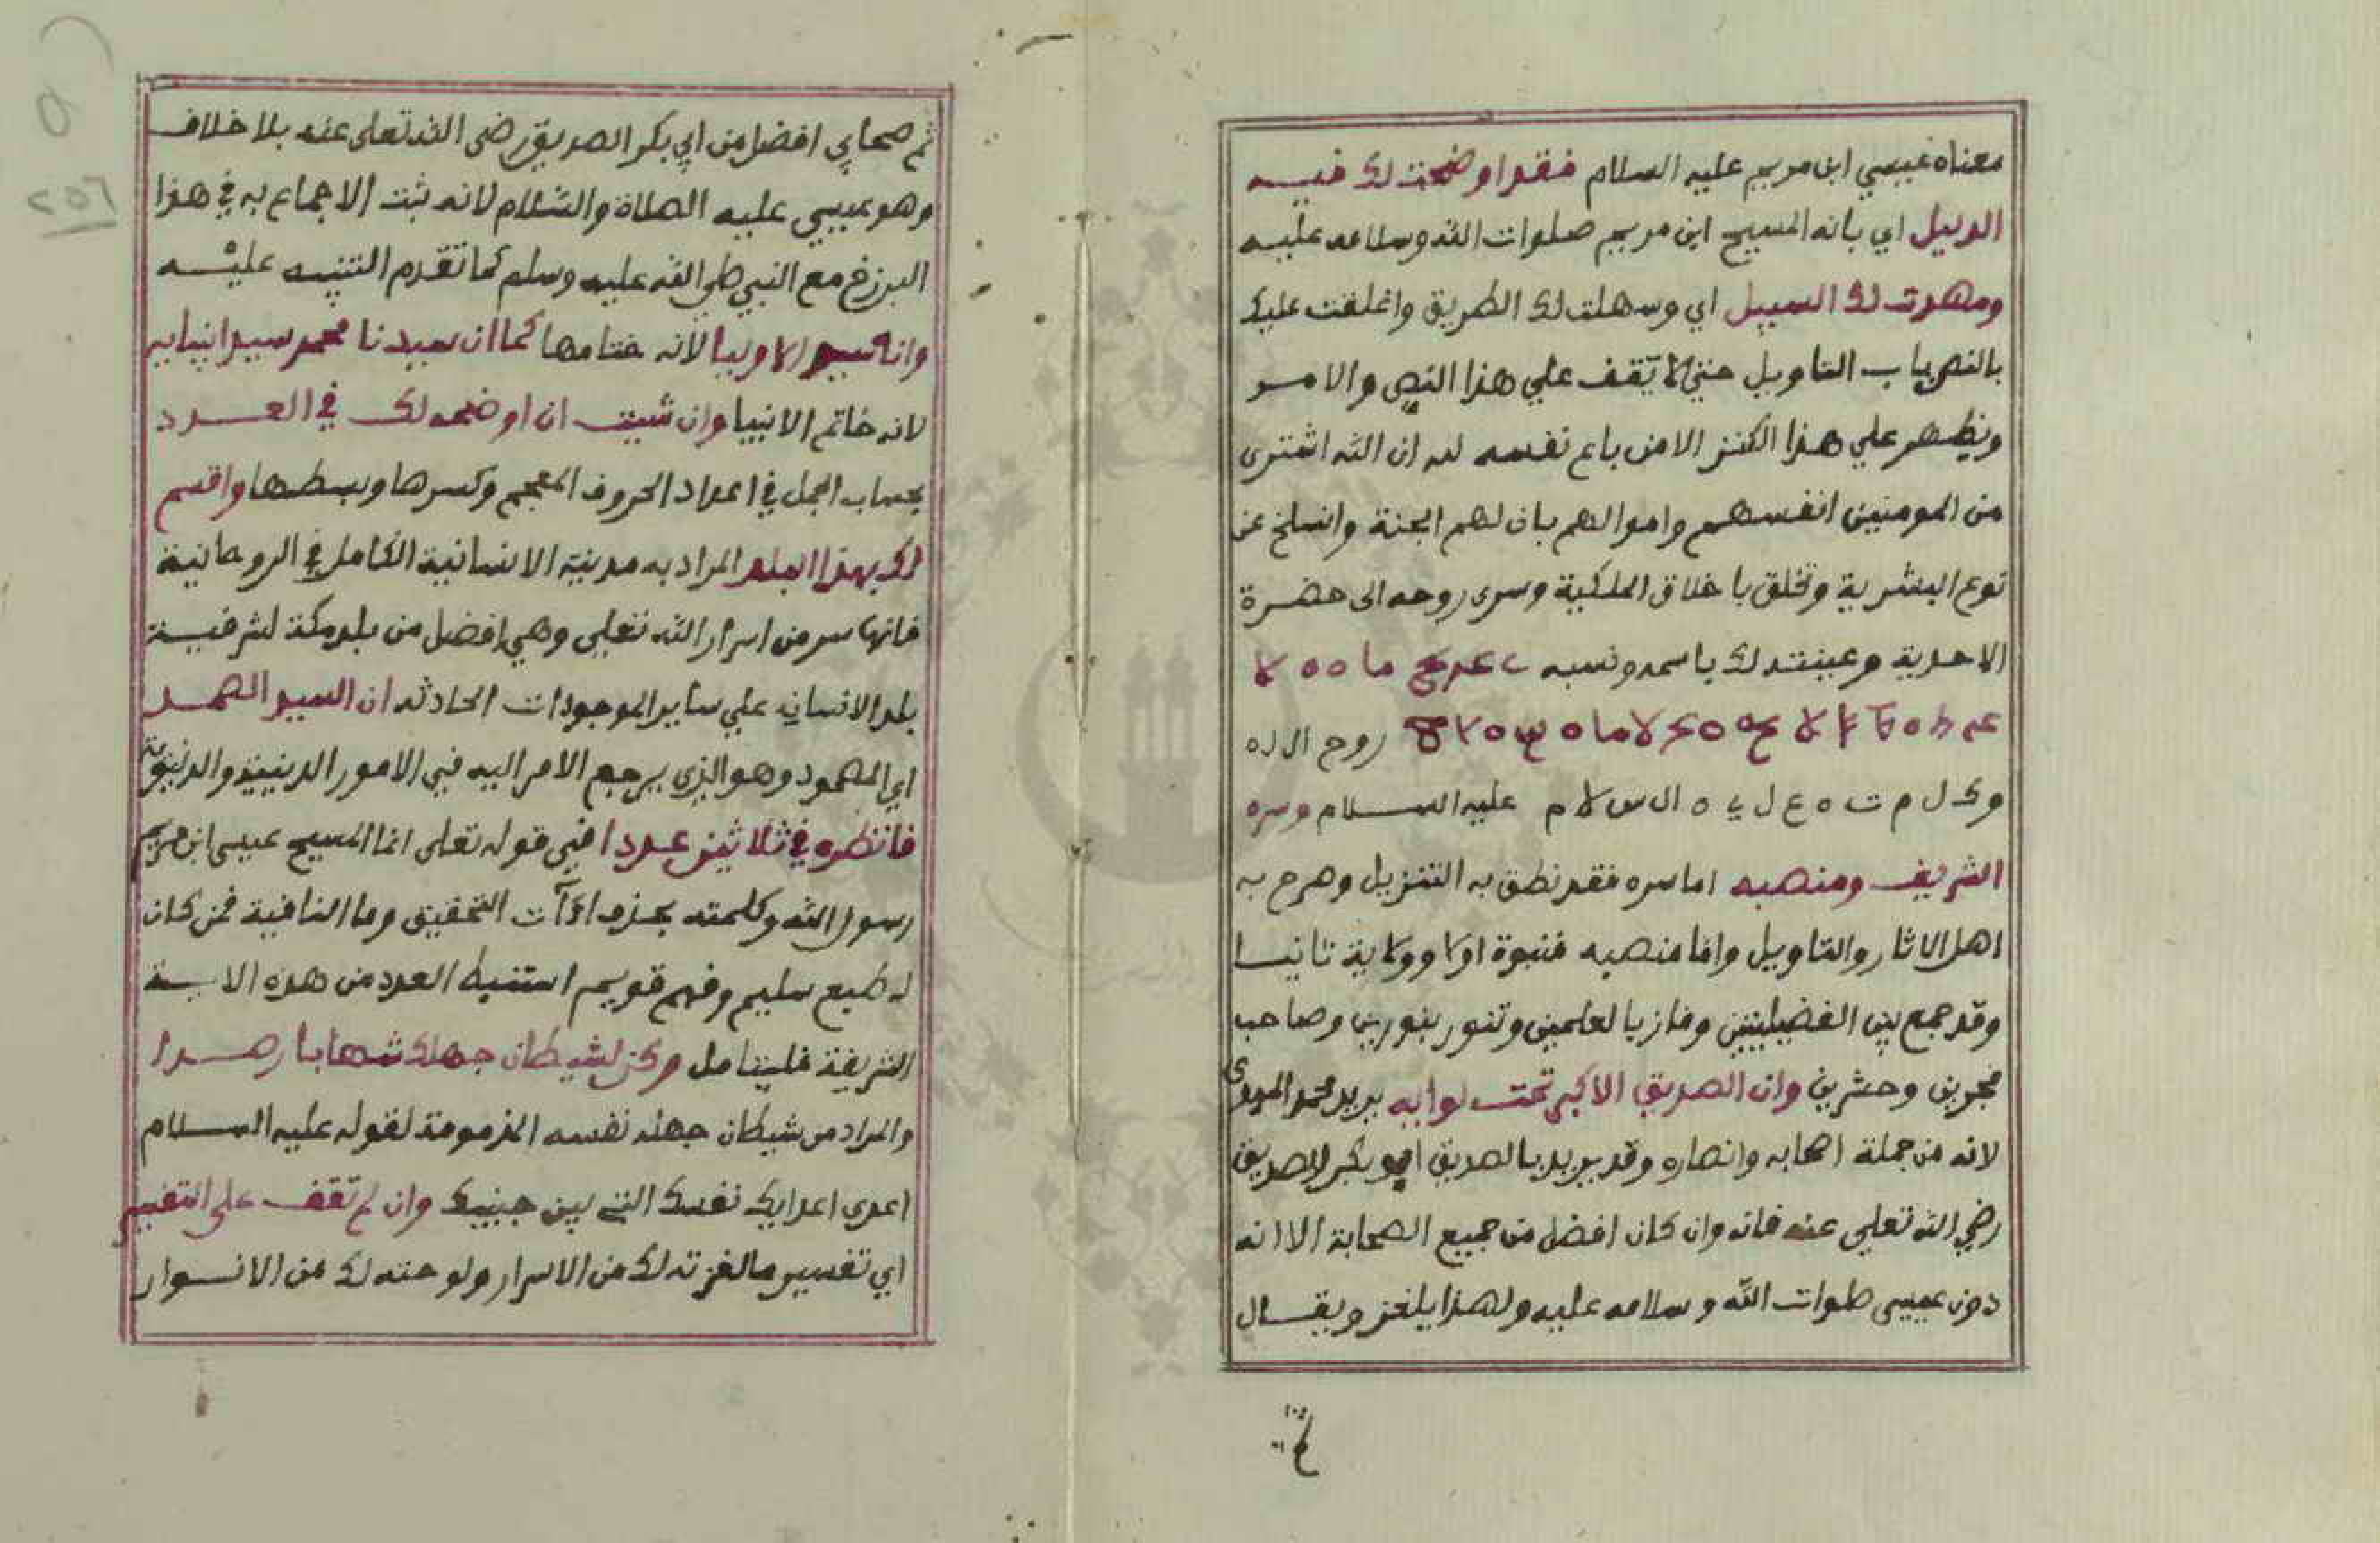 معناه عيسي ابن مريم عليه السلام فقد اوضحت لك فيه
الدليل اي بانه المسيح ابن مريم صلوات الله وسلامه عليه
ومهدت لك السبيل اي وسهلت لك الطريق واغلقت عليك
بالنص باب التاويل حتي لا يقف علي هذا النص والامر
ويظهر علي هذا الكنز الا من باع نفسه لله ان الله اشتري
من المومنين انفسهم واموالهم بان لهم الجنة وانسلخ عن
نوع البشرية وتخلق باخلاق الملكية وسري روحه الى حضرة
الاحدية وعينته لك باسمه ونسبه
روح ال له
وك ل م ت ه ع ل ي ه ال س لا م عليه السلام وسره
الشريف ومنصبه اما سره فقد نطق به التنزيل وصرح به
اهل الاثار والتاويل واما منصبه فنبوة اولا وولاية ثانيا
وقد جمع بين الفضيلتين وفاز بالعلمين وتنور بنورين وصاحب
فجرين وحشرين وان الصديق الاكبر تحت لوايه يريد محمد المهدي
لانه من جملة اصحابه وانصاره وقد يريد بالصديق ابو بكر الصديق
رضي الله تعلي عنه فانه وان كان افضل من جميع الصحابة الا انه
دون عيسى صلوات الله وسلامه عليه ولهذا يلغز ويقال
ثم صحابي افضل من ابي بكر الصديق رضى الله تعلى عنه بلا خلاف
وهو عيسي عليه الصلاة والسلام لانه ثبت الاجماع به في هذا
البرزخ مع النبي صلي الله عليه وسلم كما تقدم التنبيه عليه
وانه سيد الاوليا لانه ختامها كما ان سيدنا محمد سيد انبيايه
لانه خاتم الانبيا وان شيت ان اوضحه لك في العدد
بحساب الجمل في اعداد الحروف المعجم وكسرها وبسطها واقسم
لك بهذا البلد المراد به مدينة الانسانية الكامل في الروحانية
فانها سر من اسرار الله تعلي وهي افضل من بلد مكة لشرفية
بلد الانسانيه علي ساير الموجودات الحادثه ان السيد الصمد
اي المصمود وهو الذي يرجع الامر اليه في الامور الدينية والدنيوية
فانظره في ثلاثين عددا في قوله تعلى انما المسيح عيسى ابن مريم
رسول الله وكلمته بحذف ادآت التحقيق وما النافية فمن كان
له طبع سليم وفهم قويم استنبط العدد من هذه الاية
الشريفة فليتامل وكن لشيطان جهلك شهابا رصدا
والمراد من شيطان جهله نفسه المذمومة لقوله عليه السلام
اعدى اعدايك نفسك التي بين جنبيك وان لم تقف على التفسير
اي تفسير ما لغزته لك من الاسرار ولوحته لك من الانوار